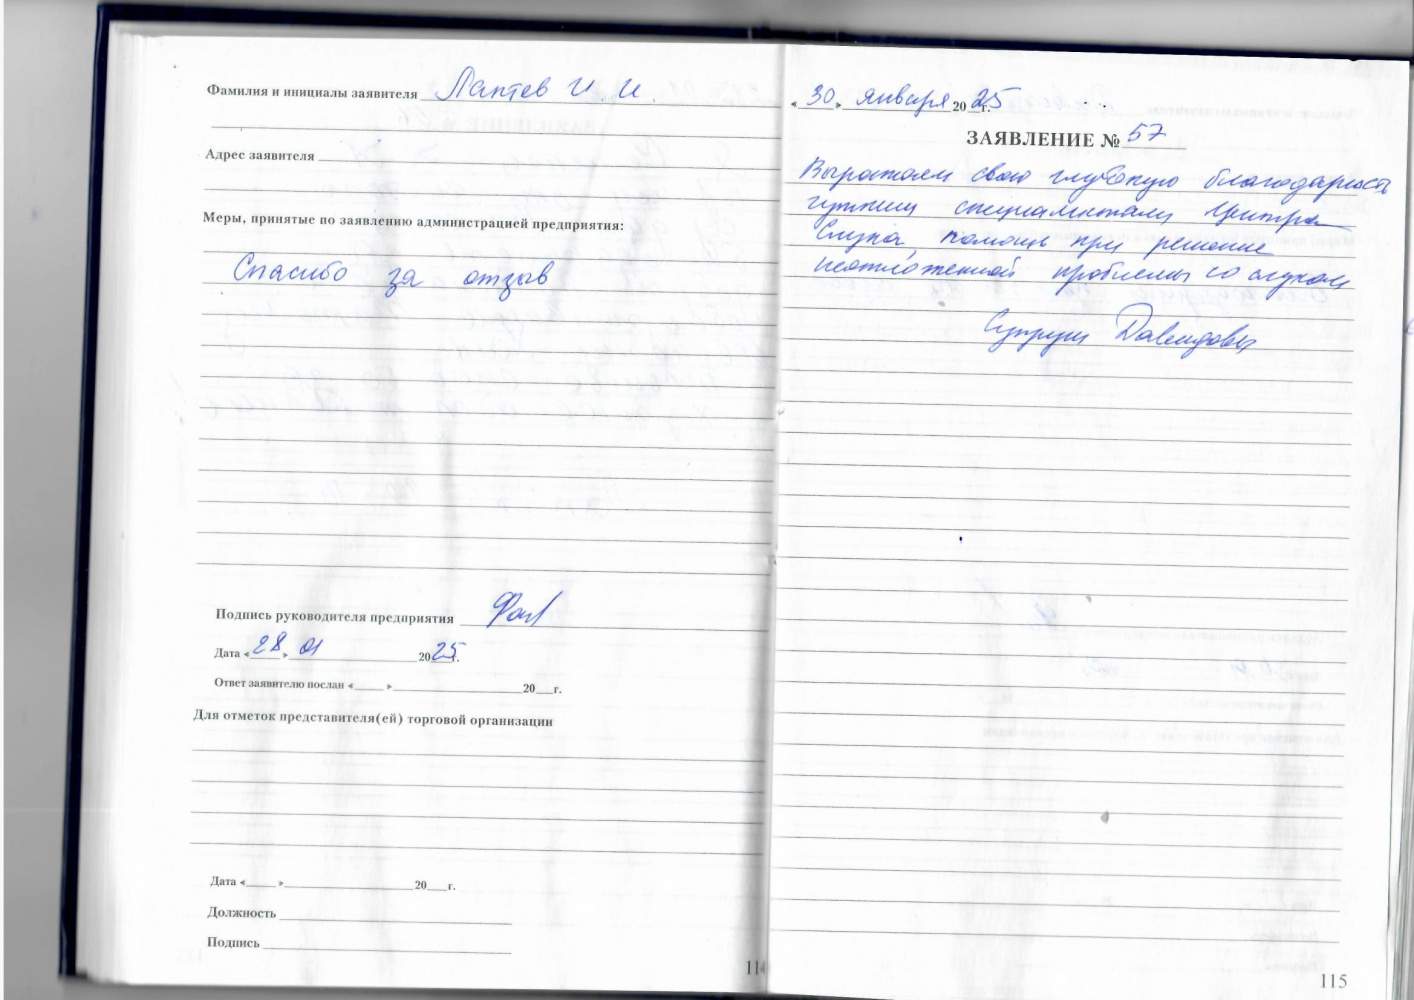 Фамилия и инициалы заявителя Лаптев И. И.
Адрес заявителя
Меры, принятые по заявлению администрацией предприятия:
Спасибо за отзыв
Подпись руководителя предприятия
Дата «28.» 01 2025г.
Ответ заявителю послан «___» ___ 20__г.
Для отметок представителя(ей) торговой организации
Дата «___» ___ 20__г.
Должность
Подпись
114
«30» января 2025г.
ЗАЯВЛЕНИЕ № 57
Выражаем свою глубокую благодарность
чутким специалистам Центра
Слуха, помощь при решение
неотложенной проблемы со слухом
Супруги Давыдовы
115